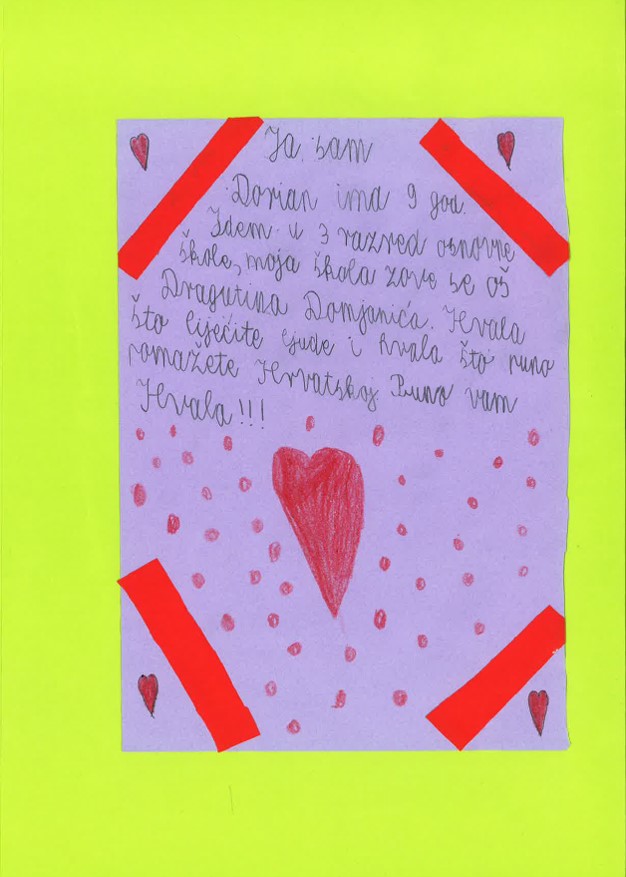 Ja sam
Dorian ima 9 god.
Idem u 3 razred osnovne
škole, moja škola zove se oš
Dragutina Domjanića. Hvala
što liječite ljude i hvala što puno
pomažete Hrvatskoj Puno vam
Hvala!!!